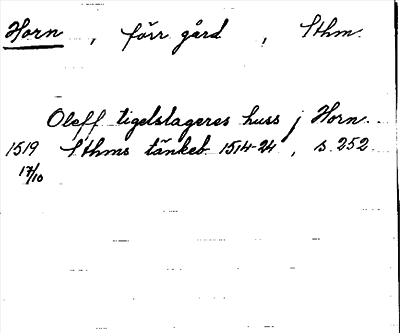 Horn, förr gård, Sthm.
Oleff tigelslageres huss j Horn.
1519 Sthms tänkeb. 1514-24, s. 252
17/10